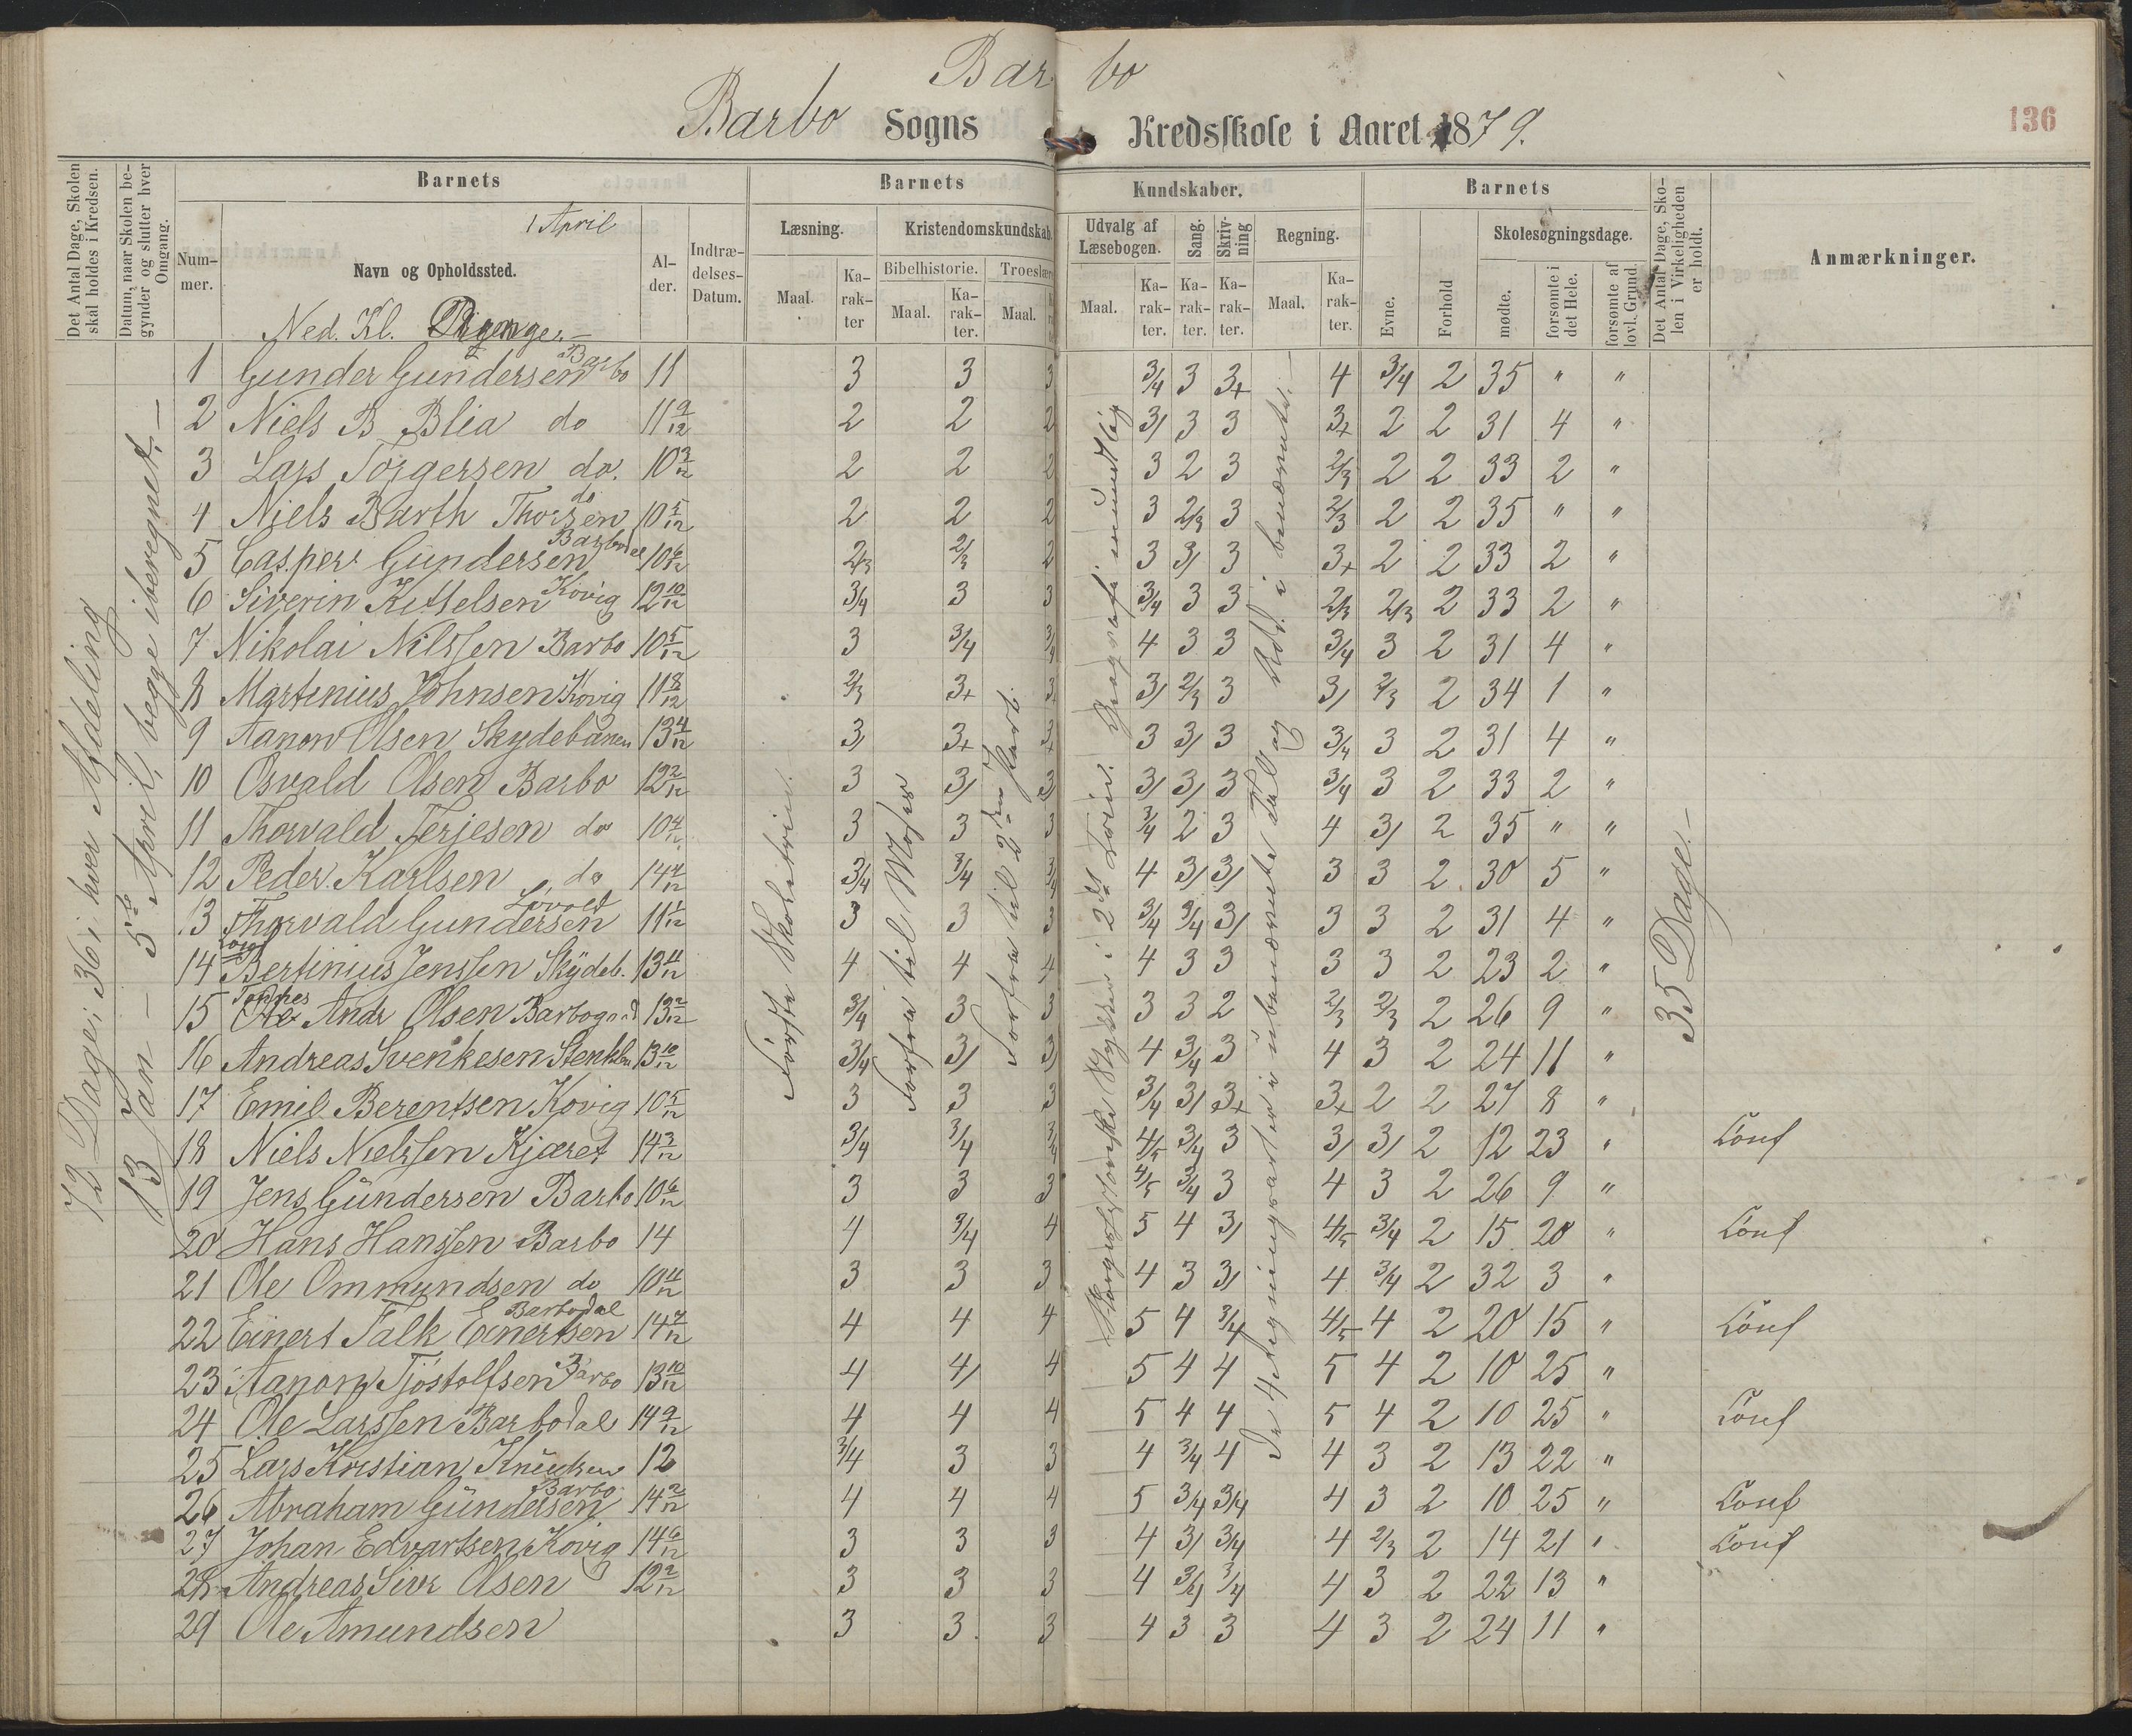 Bar bo
Barbo Sogns Kredsskole i Aaret 1879.
136
Det Antal Dage, Skolen skal holdes i Kredsen.
Datum, naar Skolen begynder og slutter hver Omgang.
Barnets
Barnets
Kundskaber.
Barnets
Det Antal Dage, Skolen i Virkeligheden er holdt.
Anmærkninger.
Nummer.
1 April
Navn og Opholdssted.
Alder.
Indtrædelses-Datum.
Læsning.
Kristendomskundskab.
Udvalg af Læsebogen.
Sang.
Skrivning
Regning.
Evne.
Forhold
Skolesøgningsdage.
Maal.
Karakter
Bibelhistorie.
Troeslære
Maal.
Karakter.
Maal.
Maal.
Karakter.
Karakter.
Karakter.
Maal.
Karakter.
mødte.
forsømte i det Hele.
forsømte af lovl. Grund.
Ned. Kl. Drenge.
72 Dage; 36 i hver Afdeling
13 Jan – 5te April, begge iberegnet. –
Første Skoletrin.
Forfra til Moses
Forfra til 2den Part.
35 Dage. –
1 Gunder Gundersen Barbo 11 3 3 3 3/4 3 3+ 4 3/4 2 35 " "
2 Niels B Blia do 11 9/12 2 2 2 3/ 3 3 3+ 2 2 31 4 "
3 Lars Torgersen do. 10 3/12 2 2 2 3 2 3 2/3 2 2 33 2 "
4 Niels Barth Thorsen do 10 5/12 2 2 2 3 2/3 3 2/3 2 2 35 " "
5 Casper Gundersen Barbodal 10 6/12 2/3 2/3 2 3 3/ 3 3+ 2 2 33 2 "
6 Siverin Kittelsen Kovig 12 10/12 3/4 3 3 3/4 3 3 2/3 2/3 2 33 2 "
7 Nikolai Nilssen Barbo 10 5/12 3 3/4 3/4 4 3 3 3/4 3 2 31 4 "
8 Martinius Johnsen Kovig 11 8/12 2/3 3+ 3+ 3/ 2/3 3 3/ 2/3 2 34 1 "
9 Aanon Olsen Skydebanen 13 4/12 3/ 3+ 3+ 3 3/ 3 3/4 3 2 31 4 "
10 Osvald Olsen Barbo 12 2/12 3 3/ 3/ 3/ 3/ 3 3/4 3 2 33 2 "
11 Thorvald Terjesen do 10 4/12 3 3 3 3/4 2 3 4 3/ 2 35 " "
12 Peder Karlsen do 14 4/12 3/4 3/4 3/4 4 3/ 3/ 3 3 2 30 5 "
13 Thorvald Gundersen 11 1/12 3 3 3 3/4 3/4 3/ 3 3 2 31 4 "
14 Bertinius Jenssen Skydeb. 13 11/12 4 4 4 4 3 3 3 3 2 23 2 "
15 Andr Olsen 13 2/12 3/4 3 3 3 3 2 2/3 2/3 2 26 9 "
16 Andreas Svenkesen 13 10/12 3/4 3/ 3/ 4 3/4 3 4 3 2 24 11 "
17 Emil Berentsen Kovig 10 5/12 3 3 3 3/4 3/ 3+ 3+ 2 2 27 8 "
18 Niels Nielssen Kjæret 14 3/12 3/4 3/4 3/4 4/5 3/4 3 3/ 3/ 2 12 23 " Conf
19 Jens Gundersen Barbo 10 6/12 3 3 3 4/5 3/4 3 4 3 2 26 9 "
20 Hans Hanssen Barbo 14 4 3/4 4 5 4 3/ 4/5 3/4 2 15 20 " Conf
21 Ole Ommundsen do 10 11/12 3 3 3 4 3 3/ 4 3/4 2 32 3 "
22 Einert Falk Einertsen Barbodal 14 7/12 4 4 4 5 4 3/4 4/5 4 2 20 15 " Conf
23 Aanon Tjöstolfsen Barbo 13 10/12 4 4/ 4 5 4 4 5 4 2 10 25 "
24 Ole Larssen Barbodal 14 9/12 4 4 4 5 4 4 5 4 2 10 25 " Conf
25 Lars Kristian Knudsen 12 3/4 3 3 4 3/4 4 4 3 2 13 22 "
26 Abraham Gundersen Barbo 14 2/12 4 4 4 5 3/4 3/4 4 3 2 10 25 " Conf
27 Johan Edvartsen Kovig 14 6/12 3 3 3 4 3/ 3/4 4 2/3 2 14 21 " Conf
28 Andreas Sivr Olsen 12 2/12 3 3 3 4 3/4 3/4 4 3 2 22 13 "
29 Ole Amundsen 3 3 3 4 3 3 4 3 2 24 11 "